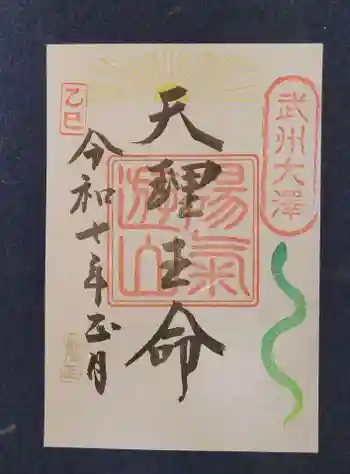 武州大澤
天理王命
陽氣遊山
乙巳
令和七年正月